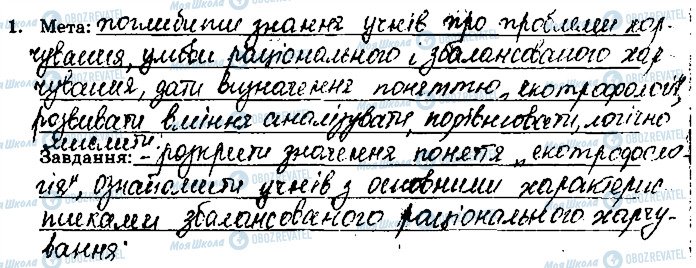 1. Мета: поглибити знання учнів про проблеми хар-
чування, умови раціонального і збалансованого хар
чування, дати визначення поняттю „екотрофологія",
розвивати вміння аналізувати, порівнювати, логічно
мислити
Завдання: - розкрити значення поняття „екотрофоло-
гія", ознайомити учнів з основними характерис
тиками збалансованого раціонального харчу-
вання.